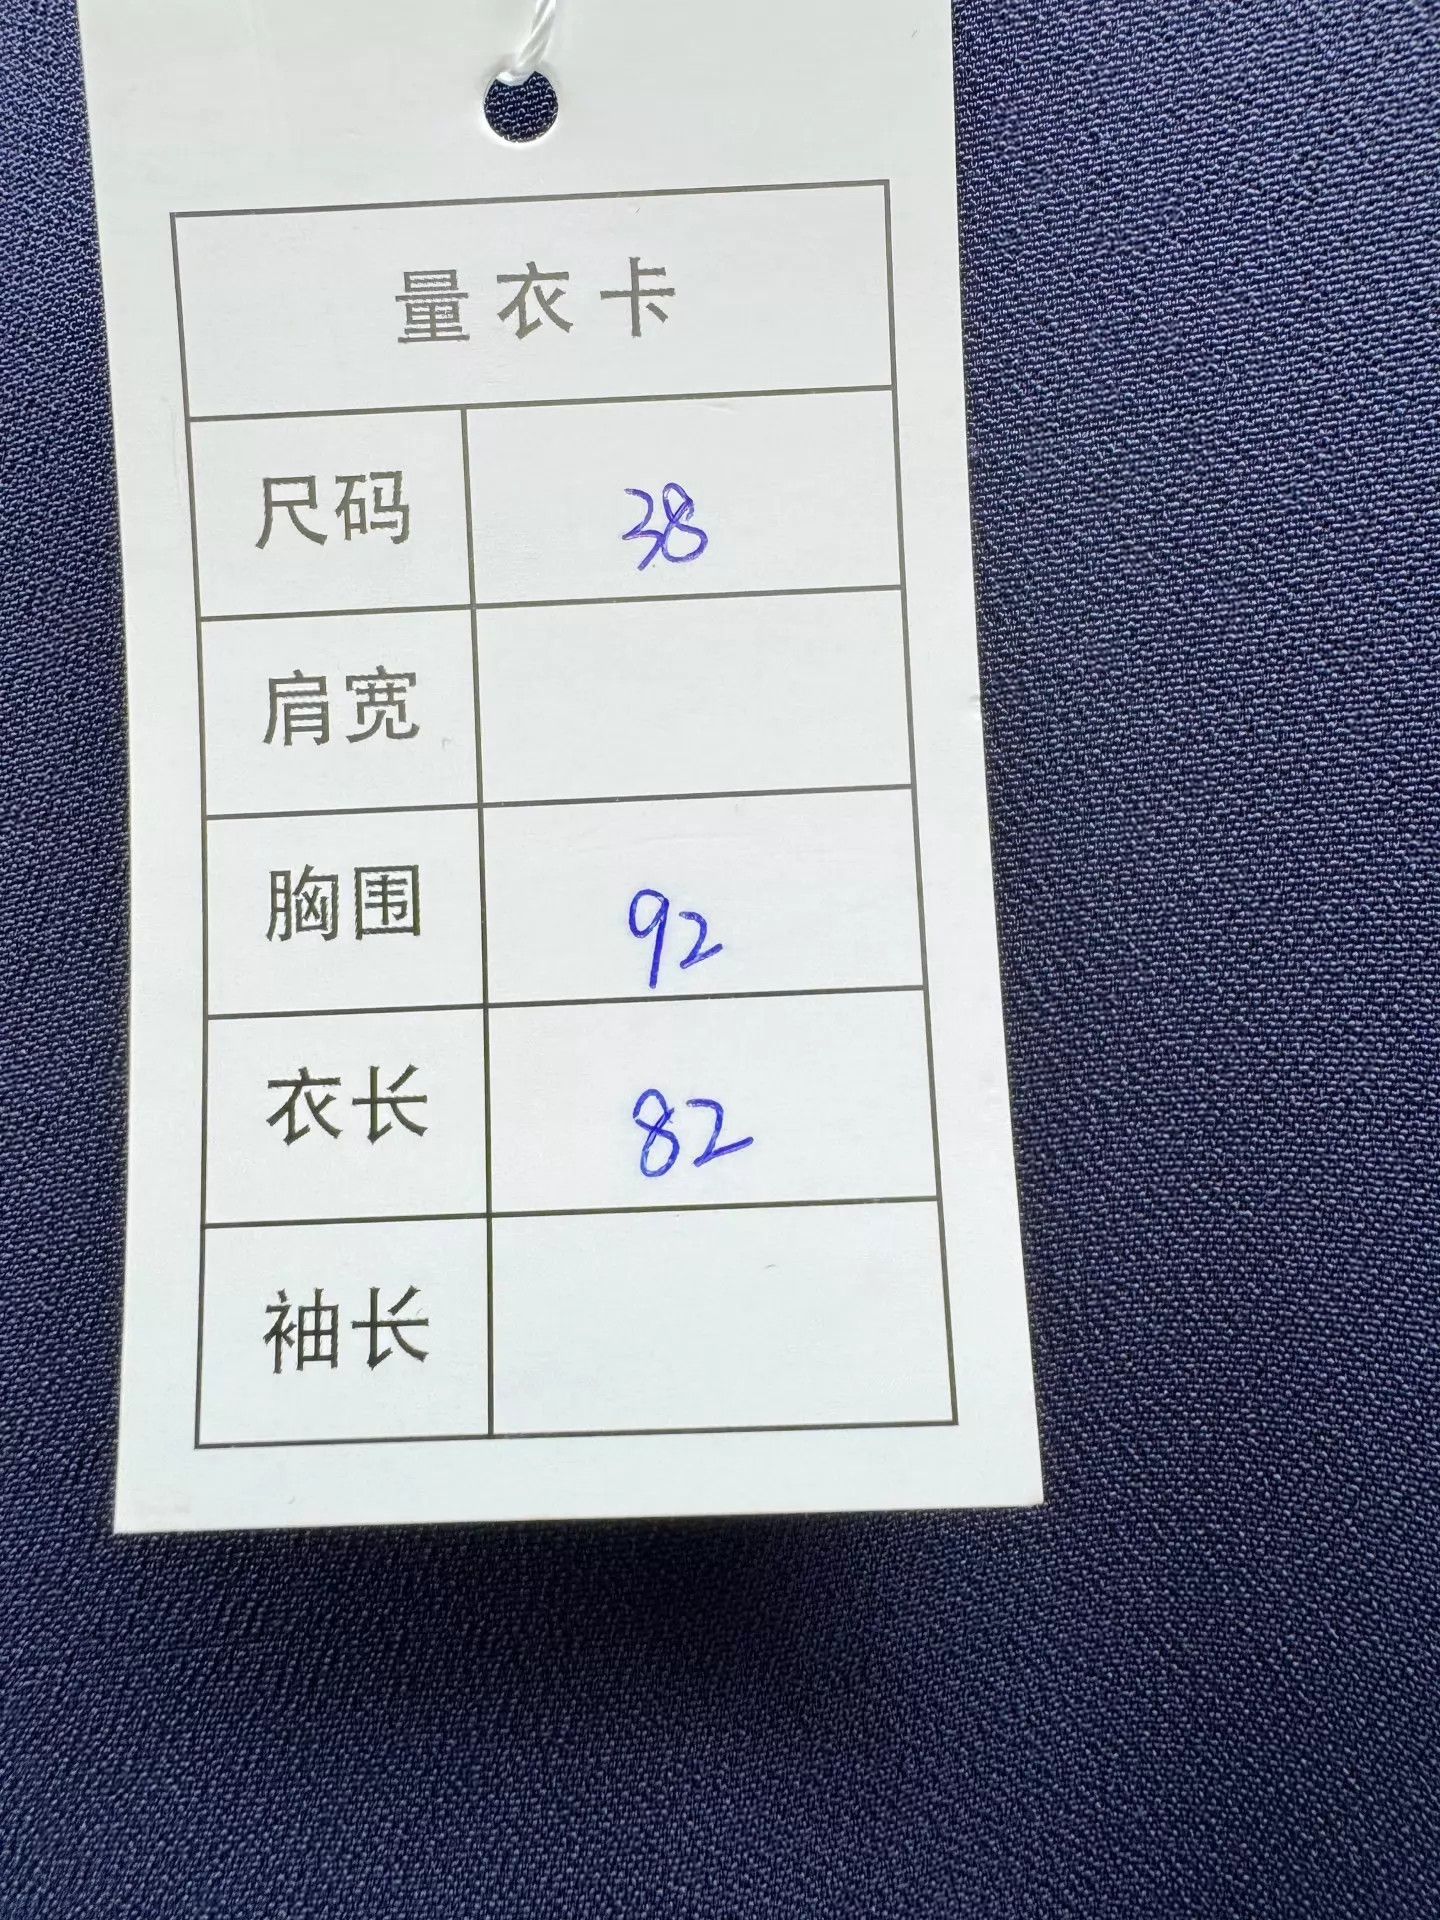 量衣卡
尺码 38
肩宽
胸围 92
衣长 82
袖长